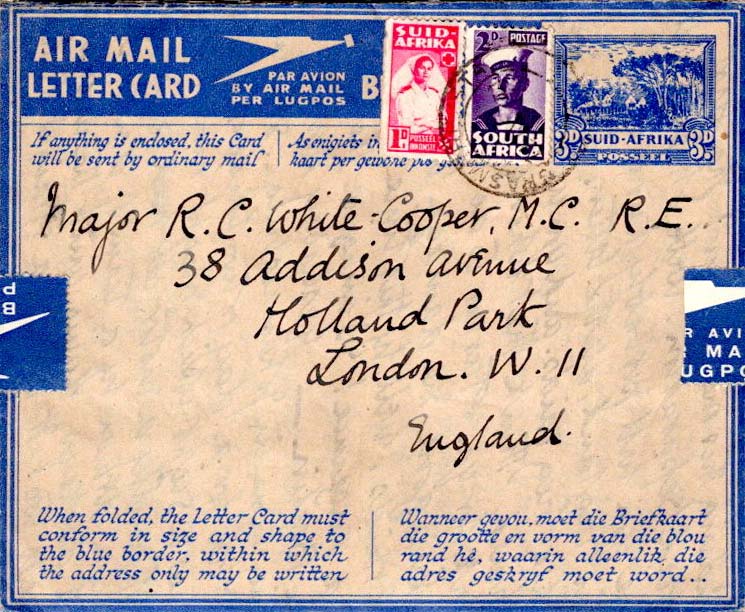 AIR MAIL
LETTER CARD
PAR AVION
BY AIR MAIL
PER LUGPOS
SUID-
AFRIKA
1D
POSSEEL
INKOMSTE
2D. POSTAGE
SOUTH
AFRICA
3D SUID-AFRIKA 3D
POSSEEL
If anything is enclosed, this Card
will be sent by ordinary mail
As enigiets in
kaart per gewone pos
Major R. C. White-Cooper, M.C. R.E.
38 Addison Avenue
Holland Park
London. W. 11
England.
B
P
R AVI
MA
UGPO
When folded, the Letter Card must
conform in size and shape to
the blue border, within which
the address only may be written
Wanneer gevou, moet die Briefkaart
die grootte en vorm van die blou
rand hê, waarin alleenlik die
adres geskryf moet word...